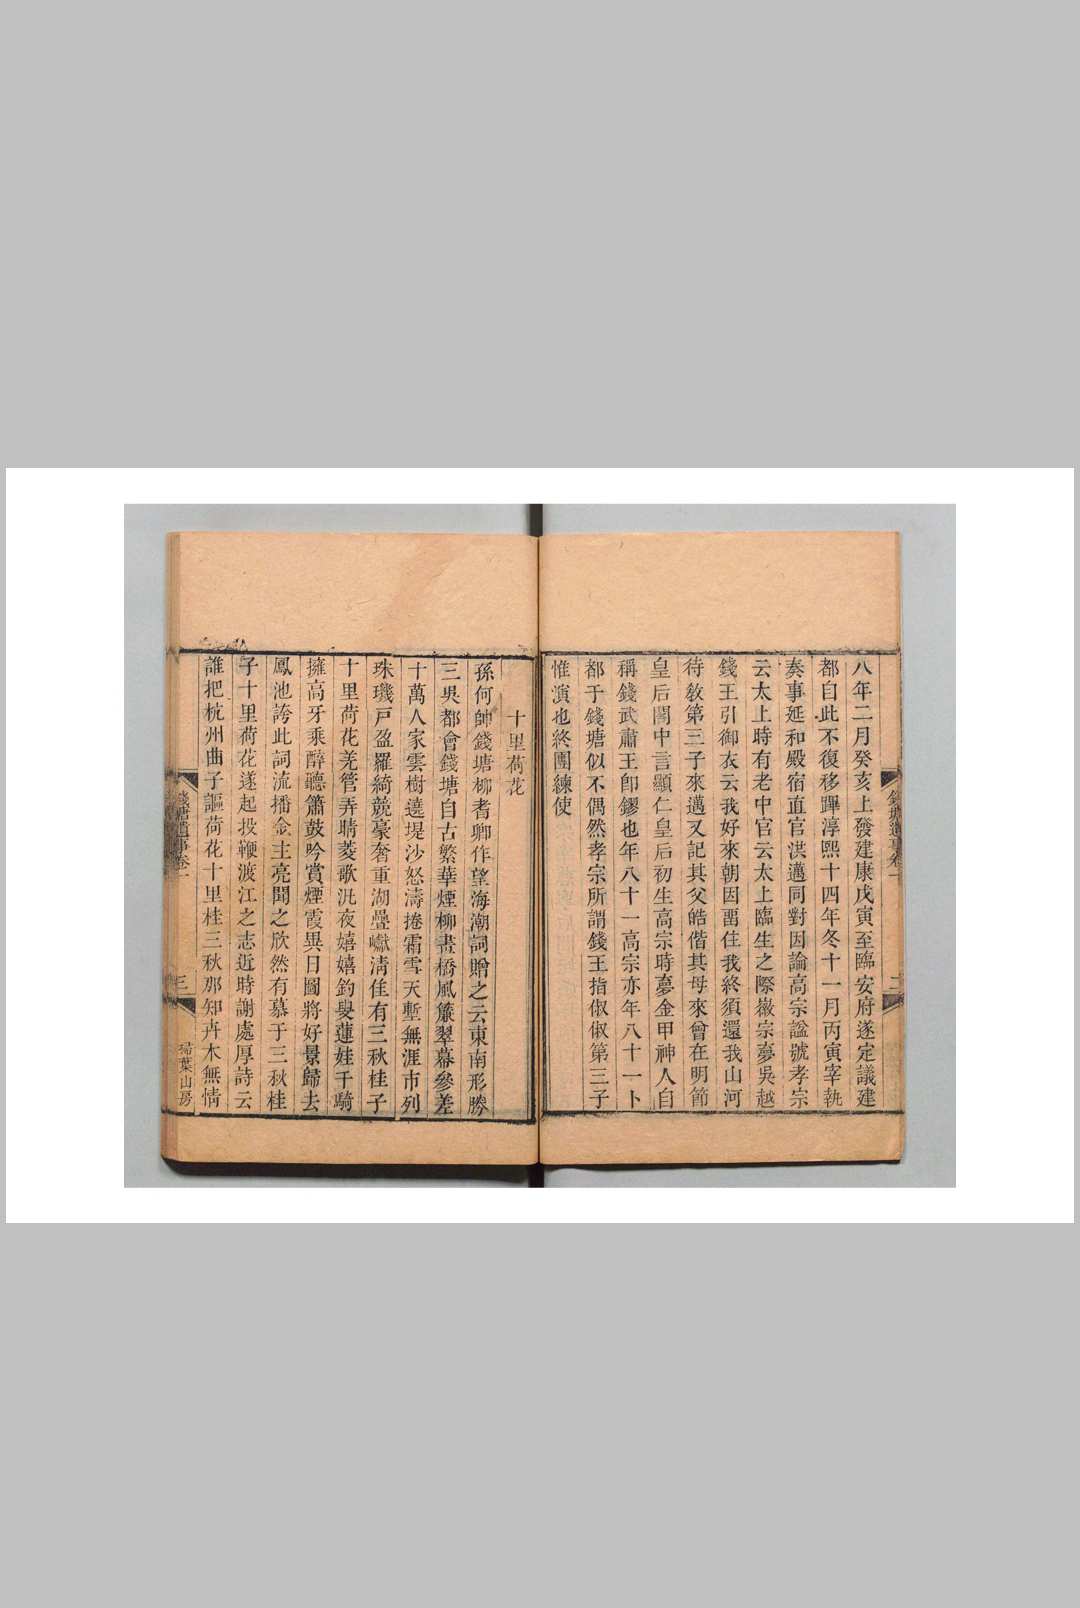 八年二月癸亥上發建康戊寅至臨安府遂定議建
都自此不復移蹕淳熙十四年冬十一月丙寅宰執
奏事延和殿宿直官洪邁同對因論高宗諡號孝宗
云太上時有老中官云太上臨生之際徽宗夢吳越
錢王引御衣云我好來朝因畱住我終須還我山河
待敎第三子來邁又記其父皓偕其母來曾在明節
皇后閣中言顯仁皇后初生高宗時夢金甲神人自
稱錢武肅王卽鏐也年八十一高宗亦年八十一卜
都于錢塘似不偶然孝宗所謂錢王指俶俶第三子
惟演也終團練使
錢塘遺事卷一
二
十里荷花
孫何帥錢塘柳耆卿作望海潮詞贈之云東南形勝
三吳都會錢塘自古繁華煙柳畫橋風簾翠幕參差
十萬人家雲樹遶堤沙怒濤捲霜雪天塹無涯市列
珠璣戸盈羅綺競豪奢重湖疊巘淸佳有三秋桂子
十里荷花羌管弄晴菱歌汎夜嬉嬉釣叟蓮娃千騎
擁高牙乘醉聽簫鼓吟賞煙霞異日圖將好景歸去
鳳池誇此詞流播金主亮聞之欣然有慕于三秋桂
子十里荷花遂起投鞭渡江之志近時謝處厚詩云
誰把杭州曲子謳荷花十里桂三秋那知卉木無情
錢塘遺事卷一
三
掃葉山房